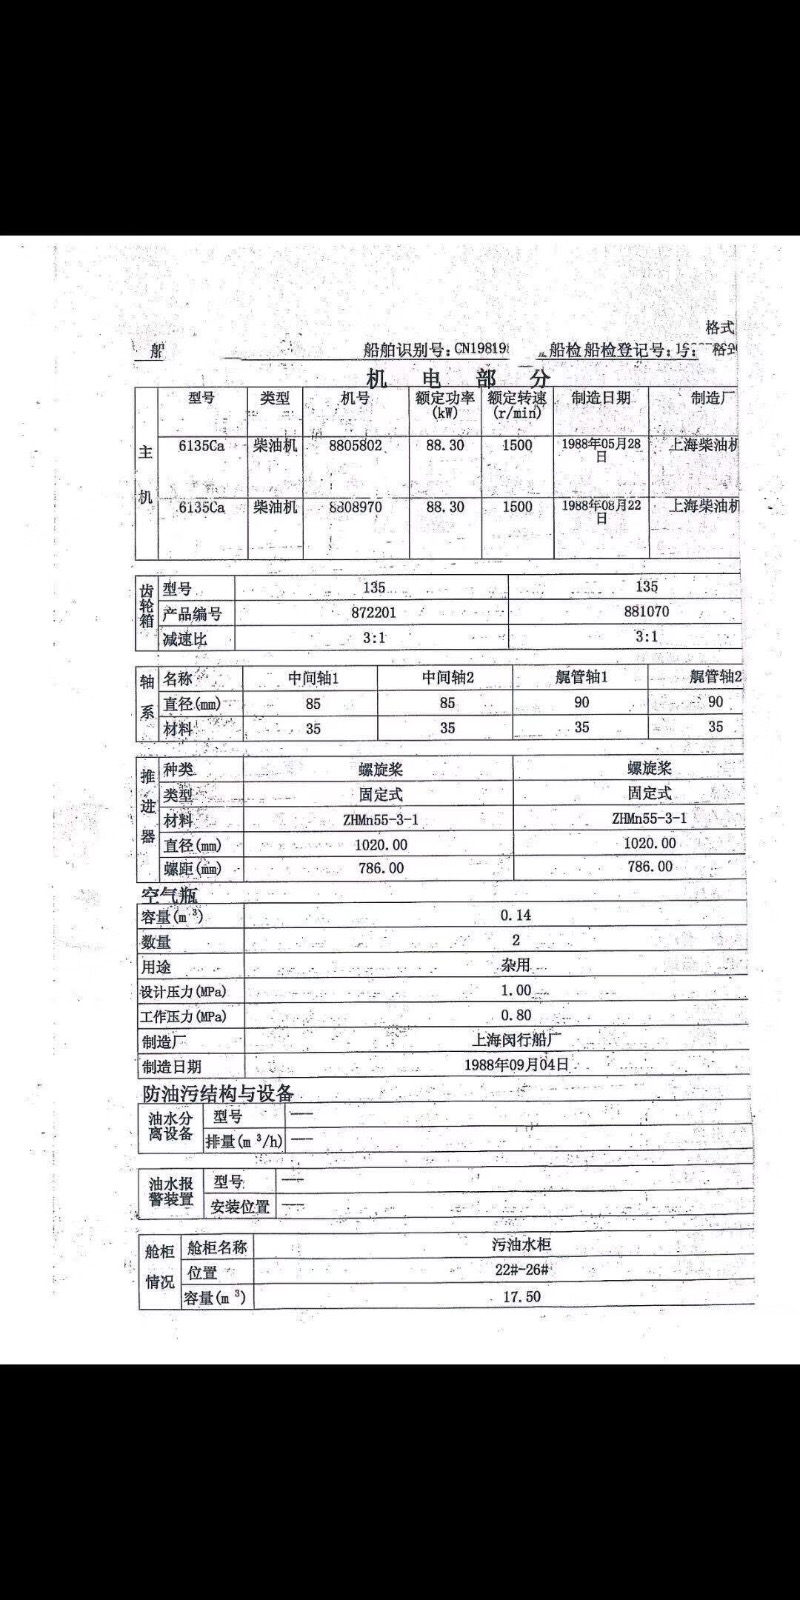 格式
船 船舶识别号:CN19819 船检登记号:
机 电 部 分
主机 型号 类型 机号 额定功率(kW) 额定转速(r/min) 制造日期 制造厂
6135Ca 柴油机 8805802 88.30 1500 1988年05月28日 上海柴油机
6135Ca 柴油机 8808970 88.30 1500 1988年08月22日 上海柴油机
齿轮箱 型号 135 135
产品编号 872201 881070
减速比 3:1 3:1
轴系 名称 中间轴1 中间轴2 艉管轴1 艉管轴2
直径(mm) 85 85 90 90
材料 35 35 35 35
推进器 种类 螺旋桨 螺旋桨
类型 固定式 固定式
材料 ZHMn55-3-1 ZHMn55-3-1
直径(mm) 1020.00 1020.00
螺距(mm) 786.00 786.00
空气瓶
容量(m³) 0.14
数量 2
用途 杂用
设计压力(MPa) 1.00
工作压力(MPa) 0.80
制造厂 上海闵行船厂
制造日期 1988年09月04日
防油污结构与设备
油水分离设备 型号 ——
排量(m³/h) ——
油水报警装置 型号 ——
安装位置 ——
舱柜情况 舱柜名称 污油水柜
位置 22#-26#
容量(m³) 17.50